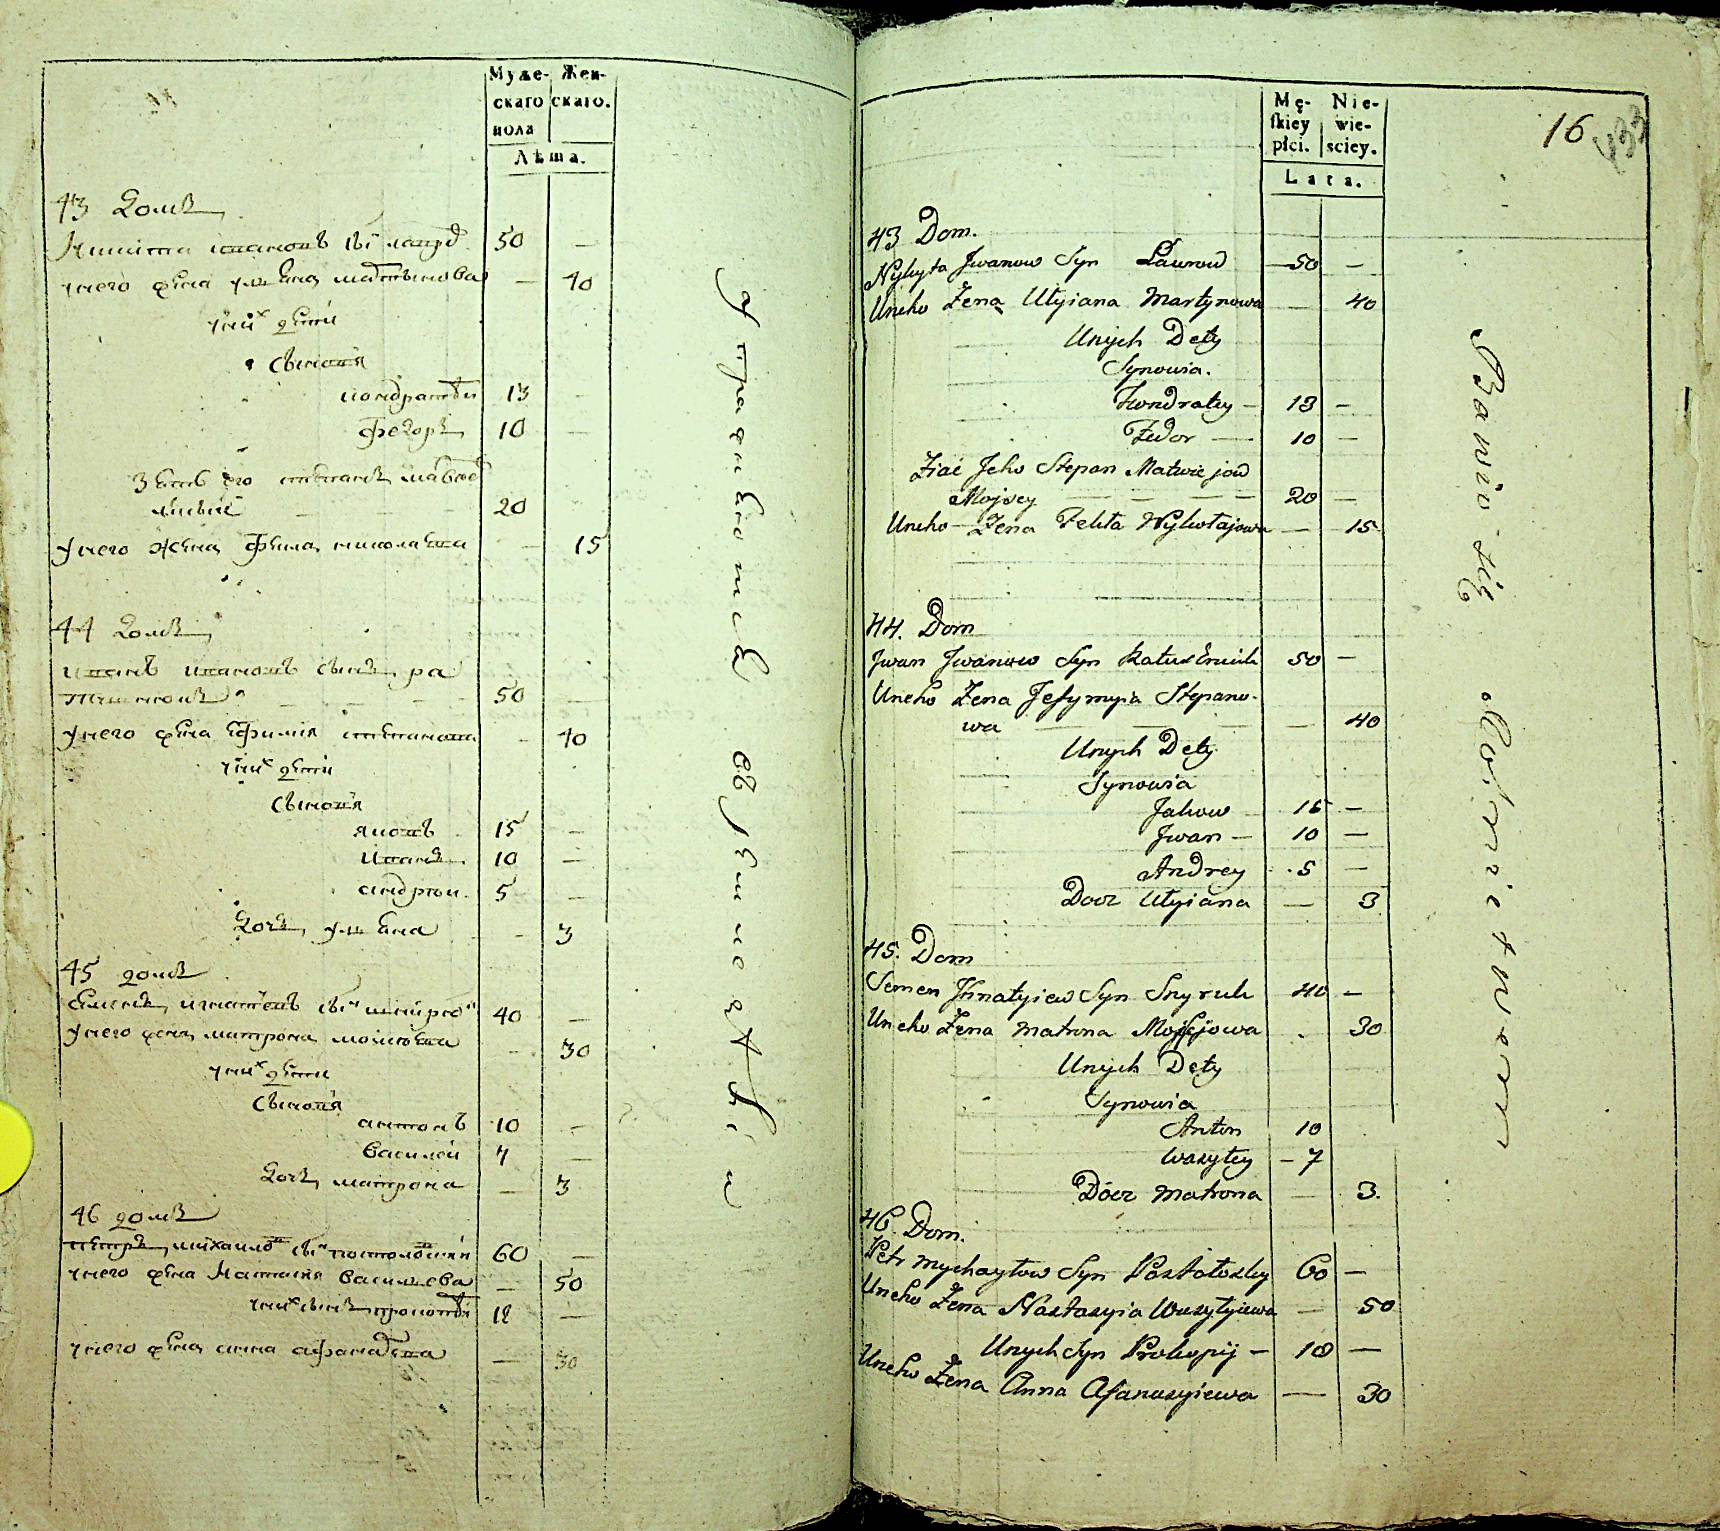 Муже-
скаго
пола
Жен-
скаго.
Лѣта.
43 домъ
Никита ивановъ сын лавров 50 —
у него жена ульяна мартынова — 40
у них дети
сыновя
кондратей 13 —
Федоръ 10 —
Зять его степанъ
20
у него жена Фекла николаева — 15
44 домъ
иванъ ивановъ сынъ ра
50 —
у него жена ефимия степанова — 40
у них дети
сыновя
яковъ 15 —
иванъ 10 —
андреи 5 —
дочь ульяна — 3
45 домъ
Семенъ игнатевъ сын 40 —
у него жена матрона моисеева — 30
у них дети
сыновя
антонъ 10 —
василеи 7 —
дочь матрона — 3
46 домъ
петръ михаилов сын 60 —
у него жена Настасия василева — 50
у них сынъ прокопеи 18 —
у него жена анна афанасева — 30
16
433
Mę-
skiey
płci.
Nie-
wie-
sciey.
Lata.
43 Dom.
Nykyta Jwanow Syn Ławrow 50 —
Uneho Żena Ulyiana Martynowa — 40
Unych Dety
Synowia.
Kondratey — 13 —
Fedor — 10 —
Ziać Jeho Stepan Matwiejow
Mojsey — — — — 20 —
Uneho — Żena Fekła Nykołajowa — 15
44. Dom
Jwan Jwanow Syn 50 —
Uneho Żena Jefymyia Stepano-
wa — 40
Unych Dety
Synowia
Jakow 15 —
Jwan — 10 —
Andrey 5 —
Docz Ulyiana — 3
45. Dom
Semen Hnatyiew Syn Snyruk 40 —
Uneho Żena Matrona Mojsejowa . 30
Unych Dety
Synowia
Anton 10
Wasyley — 7
Docz Matrona — 3.
46. Dom.
Petr Mychayłow Syn 60 —
Uneho Żena Nastasyia Wasyłyiewa — 50
Unych Syn Prokopij — 18 —
Uneho Żena Anna Afanasyiewa — 30
Bawio się Rolnictwem